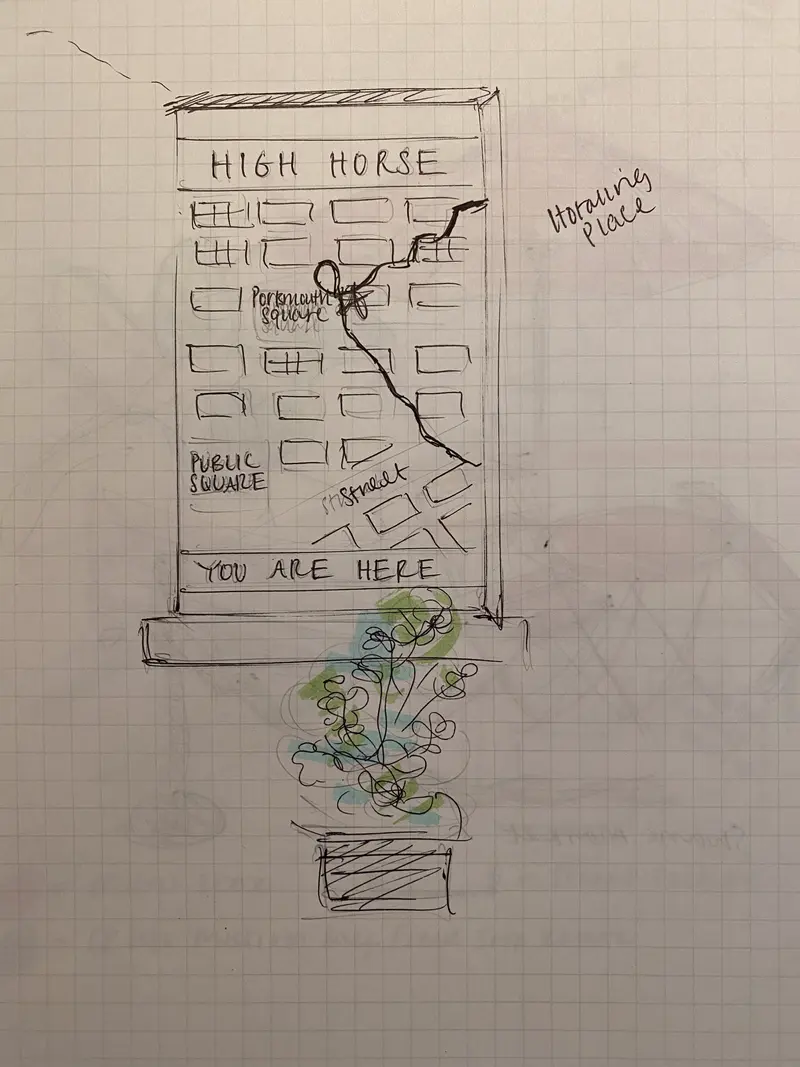 HIGH HORSE
Hotaling
Place
Portsmouth
Square
PUBLIC
SQUARE
Street
YOU ARE HERE